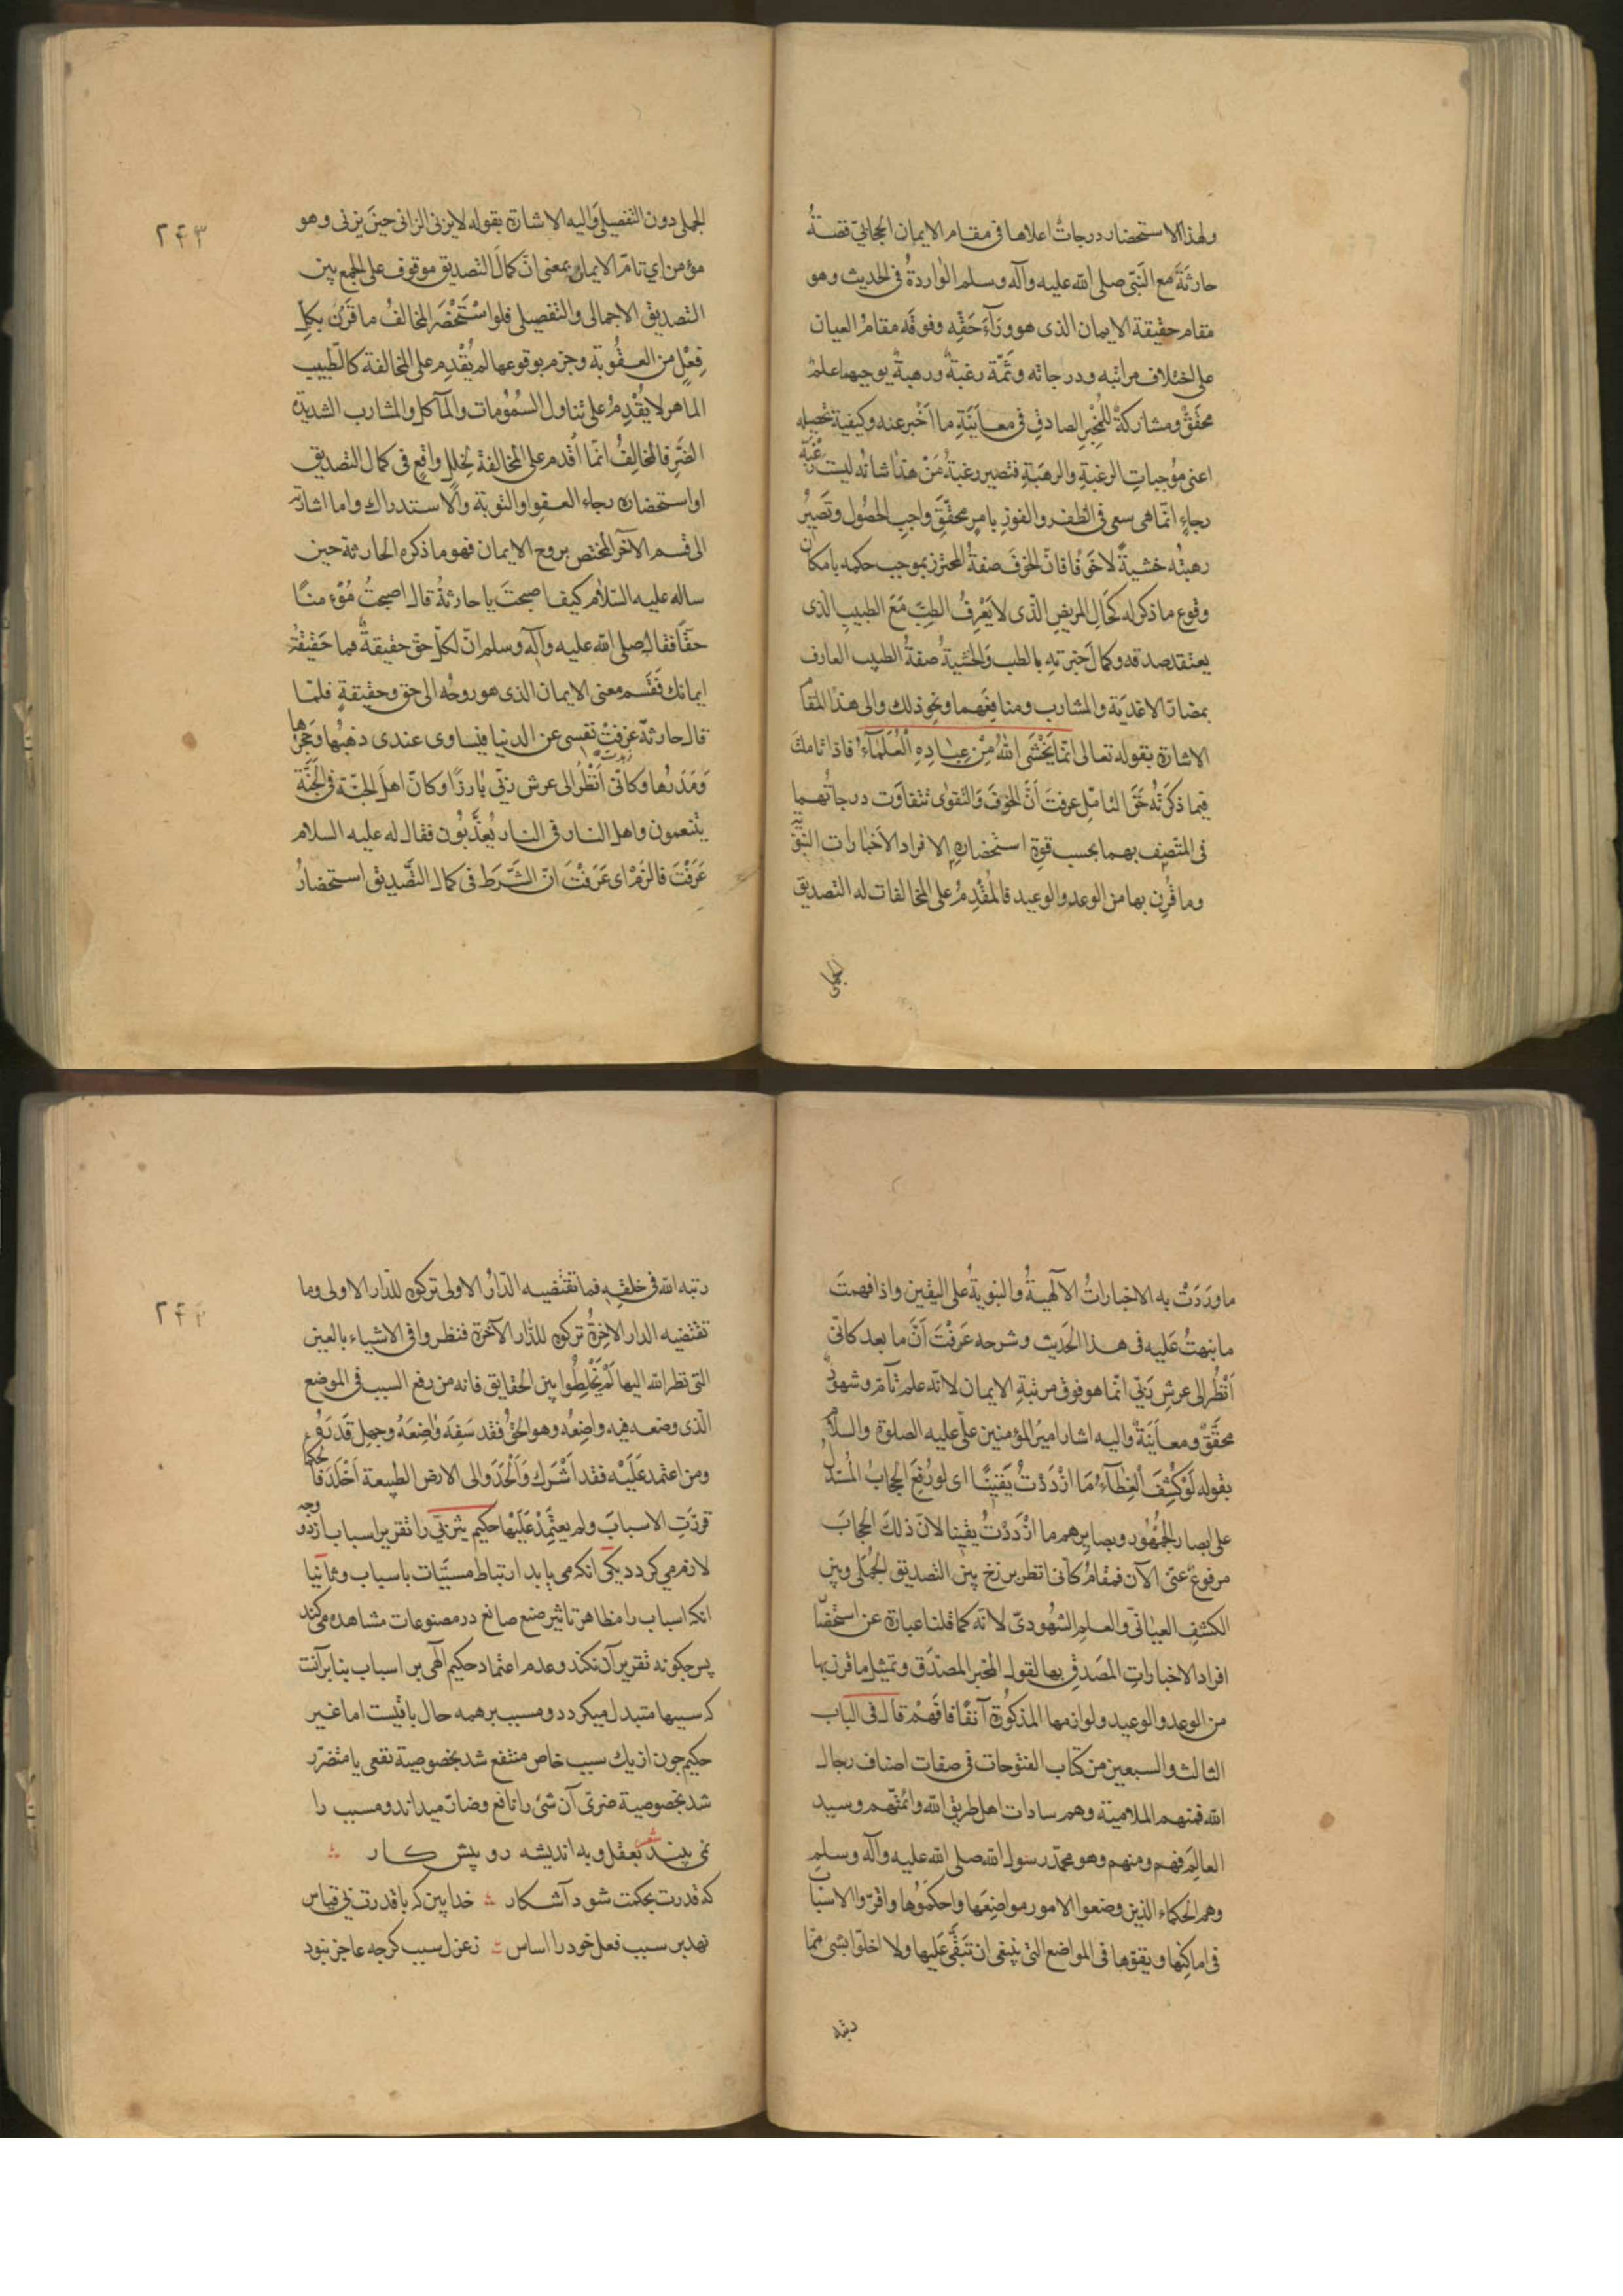 ولهذا الاستحضار درجاتٌ اعلاها فى مقام الايمان الحجابىّ قصّةُ
حارثَةَ مع النَبىّ صلى الله عليه وآله وسلم الوارِدةُ فى الحديث وهو
مقام حقيقة الايمان الذى هو ورَآءَ حَقِّهِ وفوقه مقامُ العيان
على اختلاف مراتبه ودرجاته وثَمَّة رغبةٌ ورهبةٌ يوجبهما علمٌ
محقَقٌ ومشاركةٌ للمُخبِرِ الصادقِ فى معاينَةِ ما اَخبر عنه وكيفية تحصيله
اعنى مُوجباتِ الرغبَةِ والرهبَةِ فتصير رغبةُ مَنْ هذا شانُه ليست رغبَة
رجاءٍ انّما هى سعى فى الظفر والفوزِ بامرٍ محقّقٍ واجبِ الحصُول وتَصيرُ
رهبتُه خشيةً لا خَوفًا فانّ الخوفَ صفةُ المحترز بموجب حكمه بامكان
وقوع ما ذكر له كحَالِ المريضِ الّذى لا يَعْرِفُ الطِبَّ مَعَ الطبيبِ الذى
يعتقد صدقه وكمالَ خبرتهِ بالطب والخشيةُ صفةُ الطبيب العارف
بمضارّ الاغذيَة والمشارب ومنافعهما ونحو ذلك والى هذا المقام
الاشارة بقوله تعالى انّما يَخْشَى اللهَ مِنْ عِبَادِهِ الْعُلَمَآءُ فاذا تاملتَ
فيما ذكرتُه حَقَّ التامّلِ عرفتَ اَنَّ الخوفَ والتقوى تتفاوَت درجاتُهما
فى المتّصِف بهما بحسب قوةِ استحضارهِ الافراد الاَخبارات النبويّه
وما قُرِن بها من الوعد والوعيد فالمُقْدِمُ على المخالفات له التصديق
الجملى
۲۴۳
الجملى دون التفصيلى واليه الاشارة بقوله لا يزنى الزانى حينَ يزنى وهو
مؤمن اي تامّ الايمان بمعنى انّ كمالَ التصديق موقوف على الجمع بين
التصديق الاجمالى والتفصيلى فلو اسْتَحْضَر المخالفُ ما قَرَنَ بكلِّ
فِعْلٍ من العقُوبة وجزم بوقوعها لم يُقْدِم على المخالفة كالطّبيب
الماهر لا يُقْدِمُ على تناول السمُومات والمآكل والمشارب الشديدة
الضَّررِ فالمخالِفُ انّما اُقدم على المخالفة لخَللٍ واقِعٍ فى كمال التصديق
او استحضاره رجاء العفو او التوبة والاستدراك واما اشارته
الى قسم الآخر المختص بروح الايمان فهو ما ذكره الحارثة حين
ساله عليه السّلام كيف اصبحتَ يا حارثةُ قال اصبحتُ مُؤمنًا
حقّاً فقال صلى الله عليه وآله وسلم انّ لكلّ حق حقيقةً فما حَقيقةُ
ايمانك فقَسَّم معنى الايمان الذى هو روحُه الى حق وحقيقةٍ فلمّا
قال حارثةُ عزفتْ نفسى عن الدنيا فيتساوى عندى ذهبُها وحَجَرُها
وَمَدَرُها وكانّى اَنْظُرُ الى عرش ربّى بارزًا وكانّ اهلَ الجنّة فى الجَنَّة
يتنعمون واهل النار فى النار يُعذَّبُون فقال له عليه السلام
عَرَفْتَ فالزَمْ اى عَرَفْتَ انّ الشّرطَ فى كمال التّصديق استحضارُ
ما ورَدَتْ به الاخباراتُ الآلهيةُ والنبويةُ على اليقين واذا فهمتَ
ما نبهتُ عَليه فى هذا الحَديث وشرحه عَرفْتَ اَنَّ ما بعد كانّى
اَنْظُرُ الى عرشِ رَبّى انّما هو فوق مرتبةِ الايمان لانّه علم تآمّ وشهودٌ
محقَّقٌ ومعاينَةٌ واليه اشار اميرُ المؤمنين علىّ عليه الصلوة والسلام
بقوله لَوْ كُشِفَ الْغِطَآءُ مَا ازْدَدْتُ يَقينًا اى لو رُفِعَ الحجابُ المُسْدَلُ
على ابصار الجمْهُور وبصايرهم ما ازْدَدْتُ يقينا لانّ ذلك الحجابَ
مرفوعٌ عنّى الآن فمقامُ كانّى انظر برزخ بين التصديق الجُمَلى وبين
الكشفِ العيانّى والعلمِ الشهُودىّ لانّه كما قلنا عبارة عن استحضار
افراد الاخباراتِ المصَدقِ بها لقول المخبر المصدَّق وتمثيل ما قرن بها
من الوعد والوعيد ولوازمها المذكُورة آنفًا فافهَمْ قال فى الباب
الثالث والسبعين من كتاب الفتوحات فى صفات اصناف رجال
الله فمنهم الملاميّة وهم سادات اهل طريق الله وائمّتهم وسيد
العالِم فيهم ومنهم وهو محمّد رسول الله صلى الله عليه وآله وسلم
وهم الحكماء الذين وضعوا الامور مواضِعَها واحكمُوها واقرّوا الاسباب
فى اماكِنِها ونفوها فى المواضع التى ينبغى ان تَنَفَّى عليها ولا اخلّوا بشئ ممّا
رتبه
۲۴۴
رتبه الله فى خلقهِ فما تقتضيه الدّارُ الاولى تركوه للدّار الاولى وما
تقتضيه الدار الآخِرَةُ تركوه للدّار الآخرة فنظروا فى الاشياء بالعين
التى نظر الله اليها لَمْ يَخْلِطُوا بين الحقايق فانه من رفع السبب فى الموضع
الّذى وضعه فيه واضِعُه وهو الحقّ فقد سَفِهَ واضِعَهُ وجهِل قَدرَهُ
ومن اعتمد عَلَيْه فقد اَشْرك وَاَلْحَدَ والى الارض الطبيعة اَخْلَدَ فالحكما
قرّرتِ الاسبابَ ولم يعتَمِدْ عَلَيْها حكيم ترمذى را تقرير اسباب از دو وجه
لازم مى كردد يكى انكه مى يابد ارتباط مسبَّبات باسباب وثانيا
انكه اسباب را مظاهر تاثير صنع صانع در مصنوعات مشاهده مى كند
پس چكونه تقرير آن نكند وعدم اعتماد حكيم آلهى بر اسباب بنا برآنست
كه سببها متبدل ميكردد ومسبب بر همه حال باقيست اما غير
حكيم چون از يك سبب خاص منتفع شد بخصوصية نفعى يا متضرّر
شد بخصوصية ضررى آن شئ را نافع وضارّ ميداند ومسبب را
نمى بيند شعر بعقل وبه انديشه رو پيش كار
كه قدرت بحكمت شود آشكار خدا بين كه با قدرت بى قياس
نهد بر سبب فعل خود را اساس زعزل سبب كرچه عاجز نبود